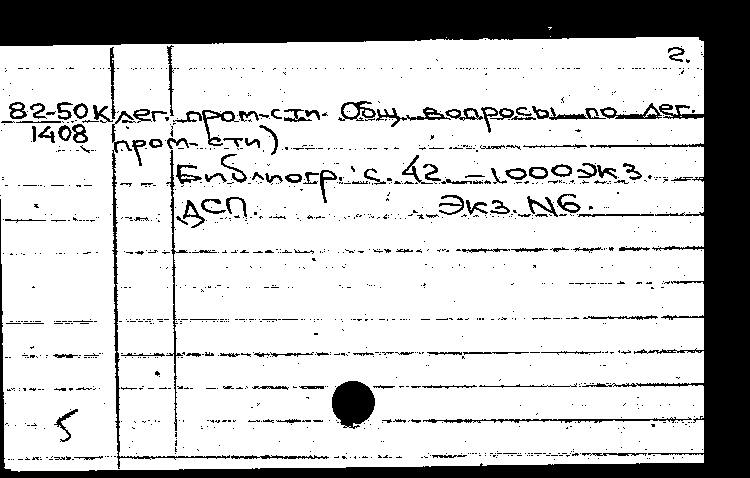 2.
82-50К лег. пром-сти. Общ. вопросы по лег.
1408 пром-сти).
Библиогр.: с. 42. - 1000 экз.
ДСП. Экз. N6.
5